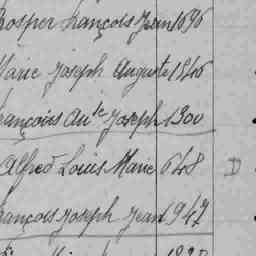 rosper François Jean 1696
Marie Joseph Auguste 1546
rançois An.te Joseph 1300
Alfred Louis Marie 648 D
rançois Joseph Jean 1942